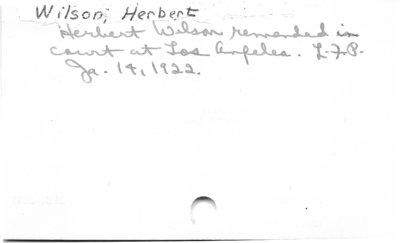 Wilson, Herbert
Herbert Wilson remanded in
court at Los Angeles. L.F.P.
Ja. 14, 1922.